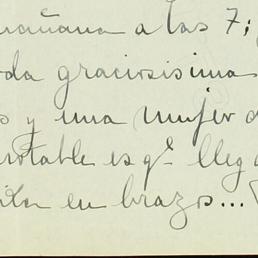 mañana a las 7;
da graciosisima
s y una mujer d
notable es qᵉ lleg
en brazos...